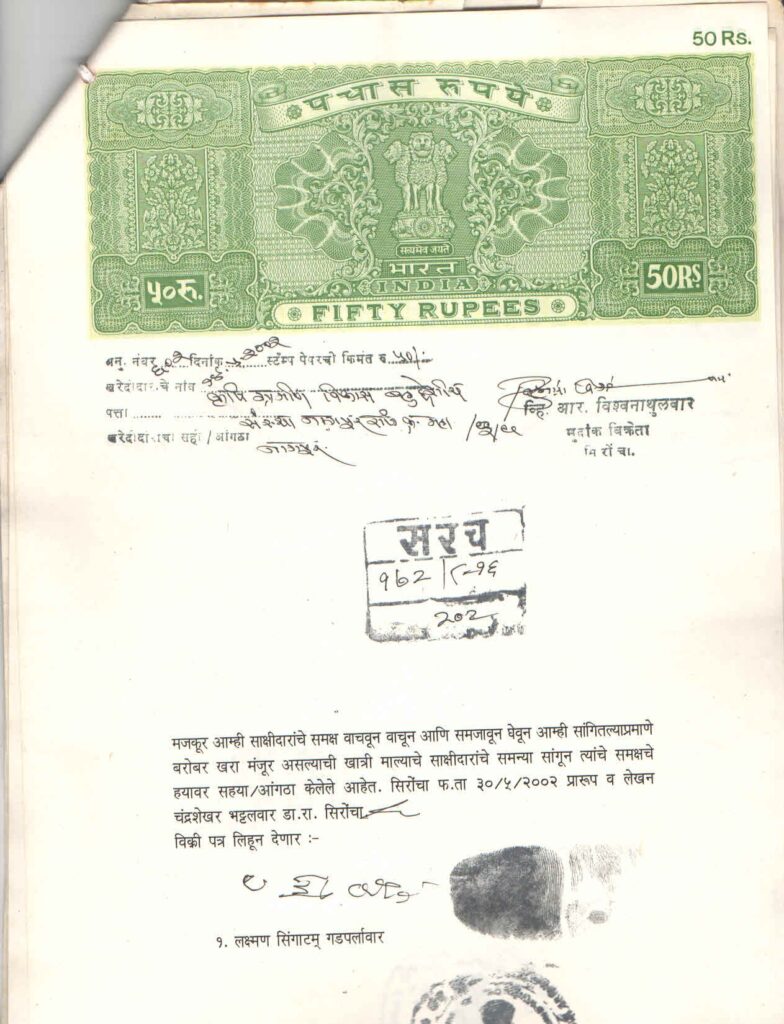 50 Rs.
पचास रुपये
सत्यमेव जयते
भारत
INDIA
५०रु.
50RS
FIFTY RUPEES
अनु. नंबर दिनांक स्टॅम्प पेपरची किंमत रु.
खरेदीदाराचे नांव कृषि ग्रामीण विकास
पत्ता संस्था नागपूर
व्हि. आर. विश्वनाथुलवार
खरेदीदाराचा सही / आंगठा नागपूर
मुद्रांक विक्रेता
सिरोंचा.
सरच
१७२ / ८-१६
मजकूर आम्ही साक्षीदारांचे समक्ष वाचवून वाचून आणि समजावून घेवून आम्ही सांगितल्याप्रमाणे
बरोबर खरा मंजूर असल्याची खात्री माल्याचे साक्षीदारांचे समन्या सांगून त्यांचे समक्षचे
हयावर सहया/आंगठा केलेले आहेत. सिरोंचा फ.ता ३०/५/२००२ प्रारूप व लेखन
चंद्रशेखर भट्टलवार डा.रा. सिरोंचा
विक्री पत्र लिहून देणार :-
१. लक्ष्मण सिंगाटम् गडपर्लावार